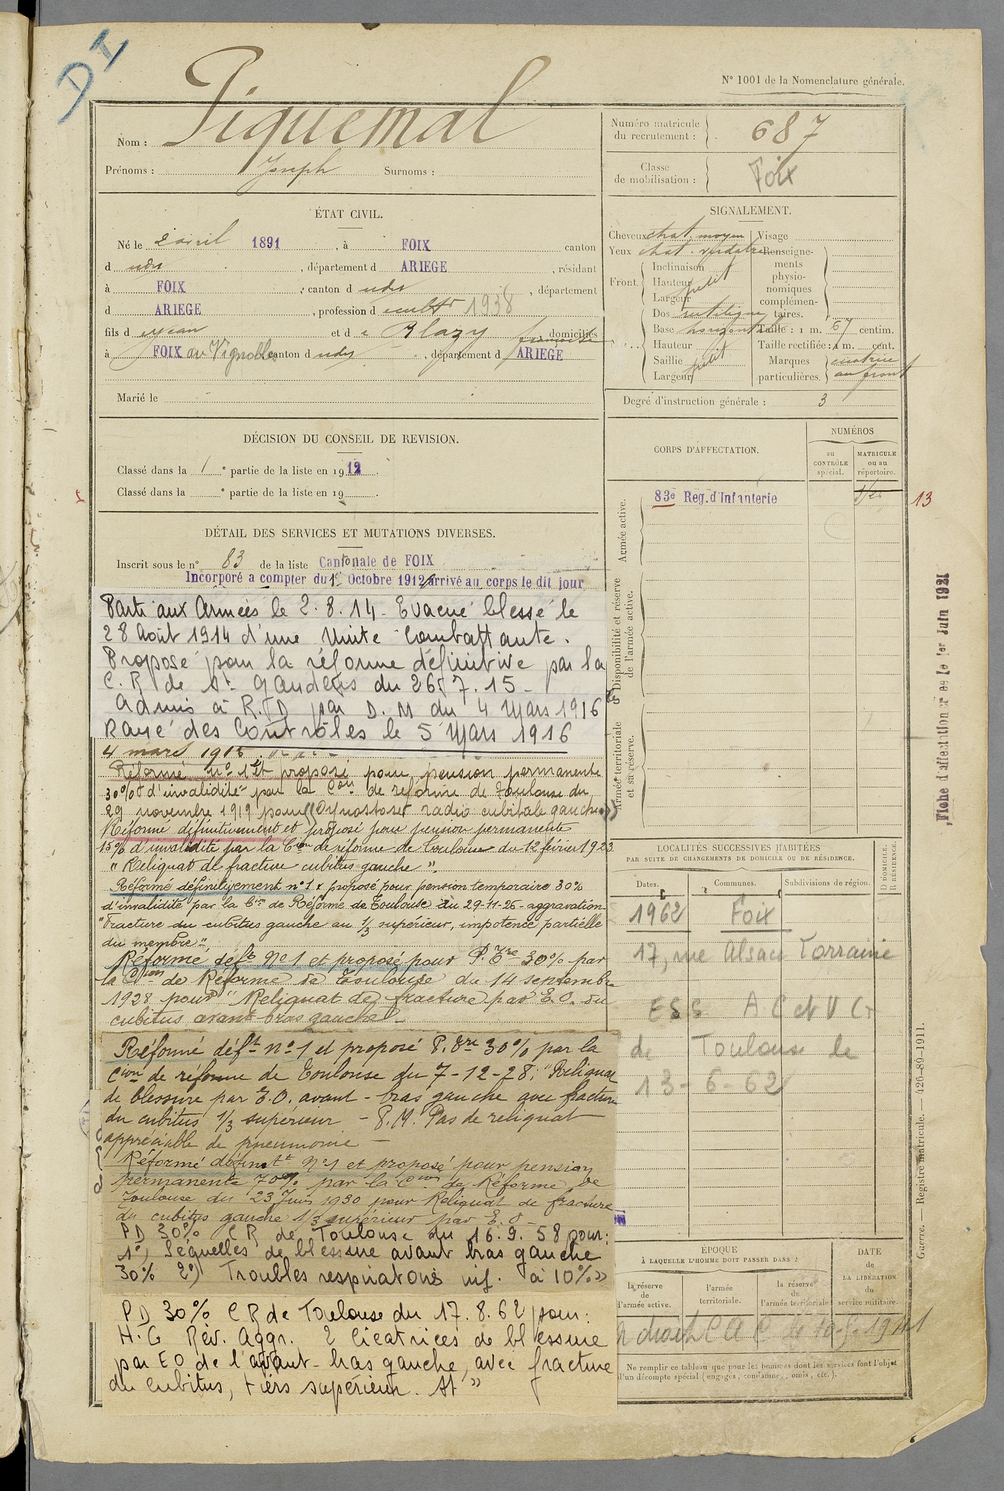 DI
N° 1001 de la Nomenclature générale.
Nom : Piquemal
Prénoms : Joseph Surnoms :
Numéro matricule du recrutement : 687
Classe de mobilisation : Foix
ÉTAT CIVIL.
Né le 2 avril 1891, à FOIX canton
d udit, département d ARIEGE, résidant
à FOIX, canton d udit, département
d ARIEGE, profession d cultr 1938
fils d Jean et d e Blazy domiciliés
à FOIX au Vignoble canton d udit, département d ARIEGE
Marié le
SIGNALEMENT.
Cheveux chat. moyen Visage
Yeux chat. verdatre Renseignements physionomiques complémentaires.
Front. Inclinaison
Hauteur petit
Largeur
Nez. Dos rectiligne
Base horizontale Taille : 1 m. 67 centim.
Hauteur Taille rectifiée : 1 m. cent.
Saillie petit Marques particulières. cicatrice au front
Largeur
Degré d'instruction générale : 3
DÉCISION DU CONSEIL DE REVISION.
Classé dans la 1e partie de la liste en 1912.
Classé dans la e partie de la liste en 19
CORPS D'AFFECTATION.
NUMÉROS
au CONTRÔLE spécial.
MATRICULE ou au répertoire.
Armée active.
83e Reg. d'Infanterie
13
Disponibilité et réserve de l'armée active.
Armée territoriale et sa réserve.
DÉTAIL DES SERVICES ET MUTATIONS DIVERSES.
Inscrit sous le n° 83 de la liste Cantonale de FOIX
Incorporé a compter du 1er Octobre 1912 arrivé au corps le dit jour
Parti aux Armées le 2.8.14 - Evacué blessé le
28 Août 1914 d'une Unité Combattante.
Proposé pour la réforme définitive par la
C. R de St Gaudens du 26.7.15 -
Admis à R.T.D par D. M du 4 Mars 1916
Rayé des Contrôles le 5 Mars 1916
4 mars 1916
Réformé n° 1 et proposé pour pension permanente
30% d'invalidité par la Con de réforme de Toulouse du
29 novembre 1919 pour "Synostose radio cubitale gauche"
Réformé définitivement et proposé pour pension permanente
15% d'invalidité par la Con de réforme de Toulouse du 12 février 1923
"Reliquat de fracture cubitus gauche".
Réformé définitivement n° 1 & proposé pour pension temporaire 30%
d'invalidité par la Con de Réforme de Toulouse du 29-11-26 - aggravation
"Fracture du cubitus gauche au 1/3 supérieur, impotence partielle
du membre".
Réformé déft N° 1 et proposé pour P. Tre 30% par
la Con de Réforme de Toulouse du 14 septembre
1928 pour "Reliquat de fracture par E.O. du
cubitus avant bras gauche"
Réformé déft n° 1 et proposé P. Tre 30% par la
Con de réforme de Toulouse du 7-12-28; "Reliquat
de blessure par E.O. avant-bras gauche avec fracture
du cubitus 1/3 supérieur - P.M. Pas de reliquat
appréciable de pneumonie -
Réformé définitt N° 1 et proposé pour pension
permanente 70% par la Con de Réforme de
Toulouse du 23 Juin 1930 pour Reliquat de fracture
du cubitus gauche 1/3 supérieur par E.O
PD 30% CR de Toulouse du 16.9.58 pour:
1°) Séquelles de blessure avant bras gauche
30% 2°) Troubles respiratoires inf. à 10% »
PD 30% CR de Toulouse du 17.8.62 pour:
H.G Rév. Aggr. 2 Cicatrices de blessure
par EO de l'avant-bras gauche, avec fracture
du cubitus, tiers supérieur. St »
LOCALITÉS SUCCESSIVES HABITÉES
PAR SUITE DE CHANGEMENTS DE DOMICILE OU DE RÉSIDENCE.
Dates. Communes. Subdivisions de région. D DOMICILE. R RÉSIDENCE.
1962 Foix
17, rue Alsace Lorraine
ESS A C et V G
de Toulouse le
13-6-62
ÉPOQUE
À LAQUELLE L'HOMME DOIT PASSER DANS :
la réserve de l'armée active.
l'armée territoriale.
la réserve de l'armée territoriale.
DATE de LA LIBÉRATION du service militaire.
Ne remplir ce tableau que pour les hommes dont les services font l'objet
d'un décompte spécial (engagés, condamnés, omis, etc.).
Fiche d'affectation créée le 1er Juin 1921
Guerre. — Registre matricule. — 426-89-1911.